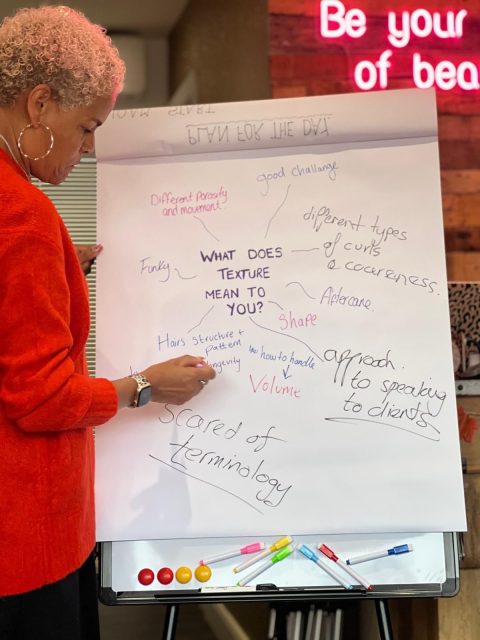 Be your
of bea
PLAN FOR THE DAY
good challange
Different porosity
and movement.
different types
of curls
& coarseness.
WHAT DOES
TEXTURE
MEAN TO
YOU?
Funky
Aftercare.
Shape
Hairs structure +
pattern
longevity
how to handle
Volume
approach
to speaking
to clients
Scared of
terminology